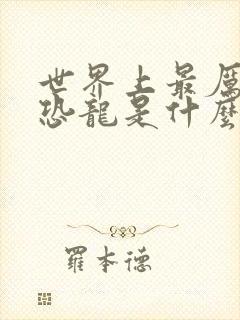 世界上最厲
恐龍是什麼
羅本德